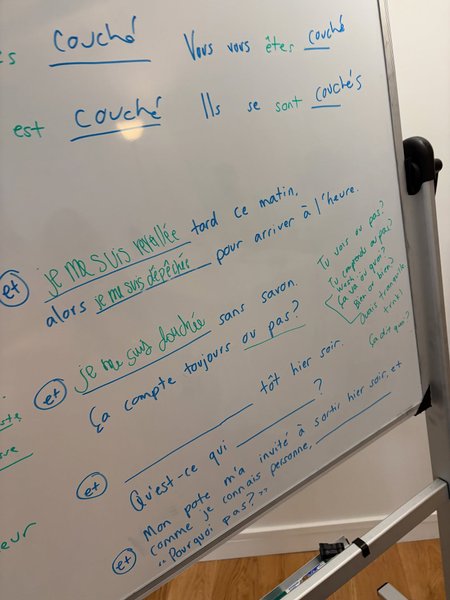 s couché Vous vous êtes couché
est couché Ils se sont couchés
et je me suis réveillée tard ce matin,
alors je me suis dépêchée pour arriver à l'heure.
et je me suis douchée sans savon.
Ça compte toujours ou pas?
et ____________ tôt hier soir.
Qu'est-ce qui ________ ?
et Mon pote m'a invité à sortir hier soir, et
comme je connais personne, ________
"Pourquoi pas?"
Tu vois ou pas?
Tu comprends ou pas?
wesh ou quoi?
Ça va ou quoi?
Bien ou bien?
Ouais tranquille
Ça dit quoi?
eur